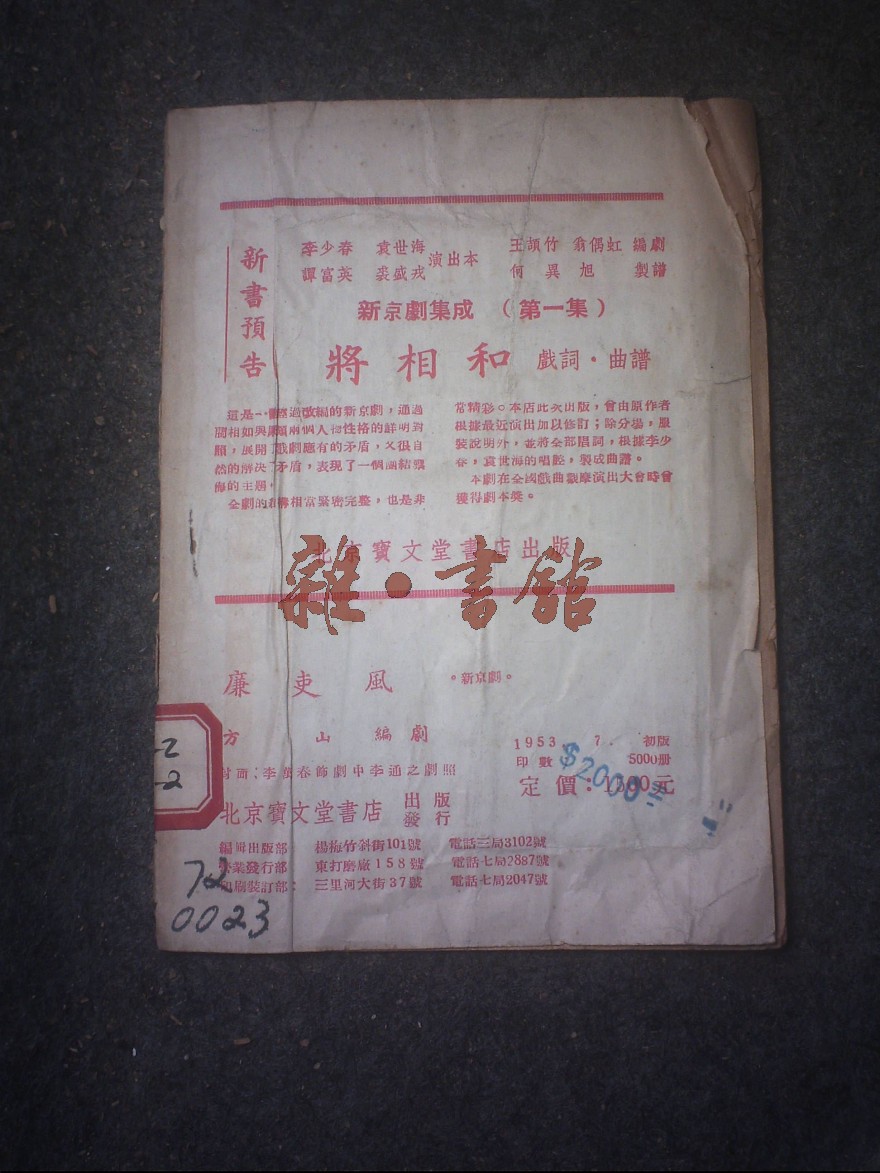 新書預告
李少春 袁世海
譚富英 裘盛戎
演出本
王頡竹 翁偶虹 編劇
何異旭 製譜
新京劇集成 (第一集)
將相和 戲詞·曲譜
這是一個經過改編的新京劇,通過
藺相如與廉頗兩個人物性格的詳明對
顯,展開了戲劇應有的矛盾,又很自
然的解決了矛盾,表現了一個團結禦
侮的主題。
全劇的結構相當緊密完整,也是非
常精彩。本店此次出版,曾由原作者
根據最近演出加以修訂;除分場,服
裝說明外,並將全部唱詞,根據李少
春,袁世海的唱腔,製成曲譜。
本劇在全國戲曲觀摩演出大會時曾
獲得劇本獎。
北京寶文堂書店出版
雜·書館
廉吏風 。新京劇。
方山編劇
封面:李萬春飾劇中李通之劇照
北京寶文堂書店 出版
發行
1953. 7. 初版
印數 5000册
定價:1500元
$2000
編輯出版部 楊梅竹斜街101號 電話三局3102號
營業發行部 東打磨廠158號 電話七局2887號
印刷裝訂部: 三里河大街37號 電話七局2047號
-2
-2
72
0023